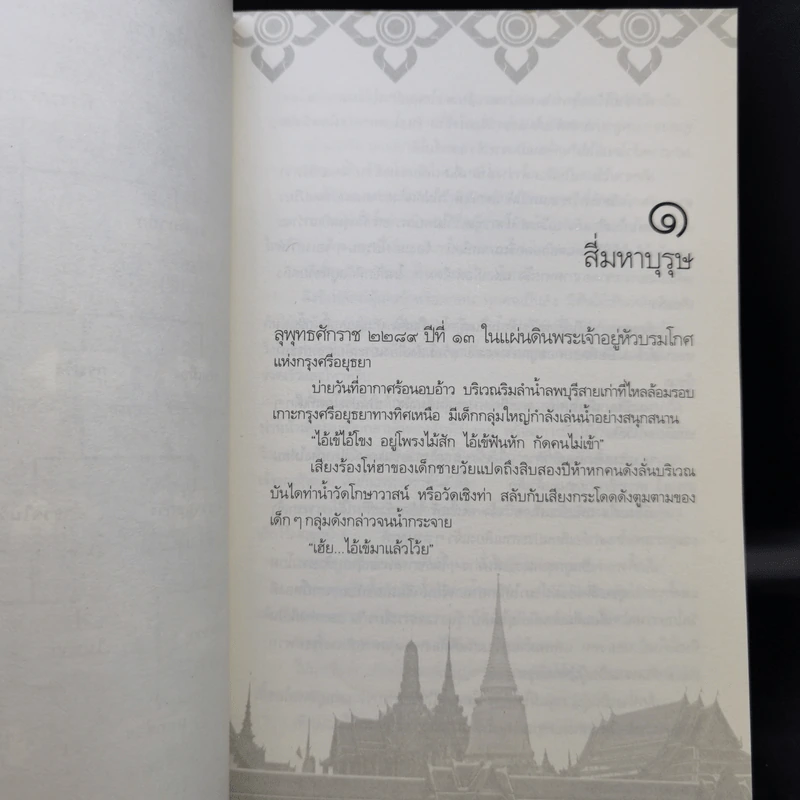 ๑
สี่มหาบุรุษ
ลุพุทธศักราช ๒๒๘๙ ปีที่ ๑๓ ในแผ่นดินพระเจ้าอยู่หัวบรมโกศ
แห่งกรุงศรีอยุธยา
บ่ายวันที่อากาศร้อนอบอ้าว บริเวณริมลำน้ำลพบุรีสายเก่าที่ไหลล้อมรอบ
เกาะกรุงศรีอยุธยาทางทิศเหนือ มีเด็กกลุ่มใหญ่กำลังเล่นน้ำอย่างสนุกสนาน
"ไอ้เข้ไอ้โขง อยู่โพรงไม้สัก ไอ้เข้ฟันหัก กัดคนไม่เข้า"
เสียงร้องโห่ฮาของเด็กชายวัยแปดถึงสิบสองปีห้าหกคนดังลั่นบริเวณ
บันไดท่าน้ำวัดโกษาวาสน์ หรือวัดเชิงท่า สลับกับเสียงกระโดดดังตูมตามของ
เด็ก ๆ กลุ่มดังกล่าวจนน้ำกระจาย
"เฮ้ย...ไอ้เข้มาแล้วโว้ย"